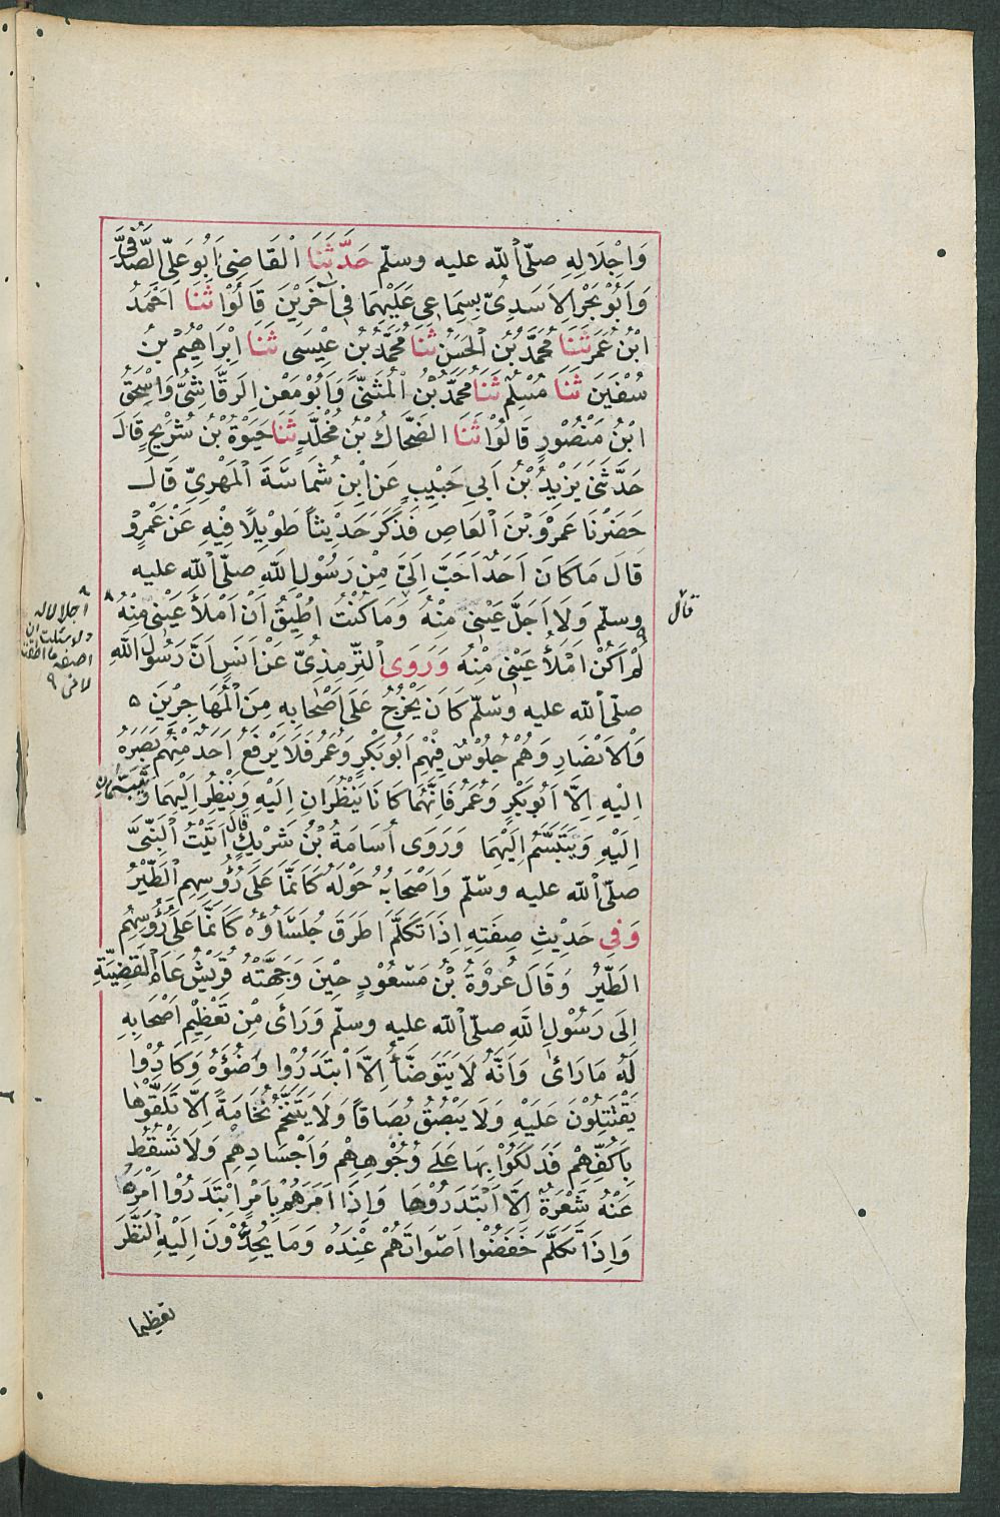 وَاِجْلَالِهِ صلّى اللّٰه عليه وسلّم حَدَّثَنَا الْقَاضِىُ اَبُو عَلِىٍّ الصَّدَفِىُّ
وَاَبُوْ بَحْرِ الْاَسَدِىُّ بِسِمَاعِى عَلَيْهِمَا فِى آخَرِيْنَ قَالُوْا ثَنَا اَحْمَدُ
ابْنُ عُمَرَ ثَنَا مُحَمَّدُ بْنُ الْحَسَنُ ثَنَا مُحَمَّدُ بْنُ عِيْسَى ثَنَا اِبْرَاهِيْمُ بْنُ
سُفْيَنَ ثَنَا مُسْلِمٌ ثَنَا مُحَمَّدُ بْنُ الْمُثَنَّى وَاَبُوْ مَعْنِ الرَّقَاشِىُّ وَاِسْحٰقُ
ابْنُ مَنْصُوْرٍ قَالُوْا ثَنَا الضَّحَّاكُ بْنُ مَخْلَدٍ ثَنَا حَيْوَةُ بْنُ شُرَيْحٍ قَالَ
حَدَّثَنِى يَزِيْدُ بْنُ اَبِى حَبِيْبٍ عَنْ ابْنِ شُمَاسَةَ الْمَهْرِىِّ قَالَ
حَضَرْنَا عَمْرَو بْنَ الْعَاصِ فَذَكَرَ حَدِيْثًا طَوِيْلًا فِيْهِ عَنْ عَمْرٍو
قَالَ مَا كَانَ اَحَدٌ اَحَبَّ اِلَىَّ مِنْ رَسُوْلِ اللّٰهِ صلّى اللّٰه عليه
وسلّم وَلَا اَجَلَّ عَيْنِى مِنْهُ وَمَا كُنْتُ اُطِيْقُ اَنْ اَمْلَأَ عَيْنِى مِنْهُ ٨
قال
٨ اجلالا له
ولو سئلت ان
اصفه ما اطقت
لانى ٩
لَمْ اَكُنْ اَمْلَأُ عَيْنِى مِنْهُ وَرَوَى التِّرْمِذِىُّ عَنْ اَنَسٍ اَنَّ رَسُوْلَ اللّٰهِ
صلّى اللّٰه عليه وسلّم كَانَ يَخْرُجُ عَلَى اَصْحَابِهِ مِنَ الْمُهَاجِرْيَنَ
وَالْاَنْصَارِ وَهُمْ جُلُوْسٌ فِيْهِمْ اَبُو بَكْرٍ وَعُمَرُ فَلَا يَرْفَعُ اَحَدٌ مِنْهُمْ بَصَرَهُ
اِلَيْهِ اِلَّا اَبُو بَكْرٍ وَعُمَرُ فَاِنَّهُمَا كَانَا يَنْظُرَانِ اِلَيْهِ وَيَنْظُرُ اِلَيْهِمَا وَيَتَبَسَّمَانِ
اِلَيْهِ وَيَتَبَسَّمُ اِلَيْهِمَا وَرَوَى اُسَامَةُ بْنُ شَرِيْكٍ قَالَ اَتَيْتُ النَّبِىَّ
صلّى اللّٰه عليه وسلّم وَاَصْحَابُهُ حَوْلَهُ كَاَنَّمَا عَلَى رُؤُسِهِمِ الطَّيْرُ
وَفِى حَدِيْثِ صِفَتِهِ اِذَا تَكَلَّمَ اَطْرَقَ جُلَسَاؤُهُ كَاَنَّمَا عَلَى رُؤُوْسِهُِمُ
الطَّيْرُ وَقَالَ عُرْوَةُ بْنُ مَسْعُوْدٍ حِيْنَ وَجَّهَتْهُ قُرَيْشٌ عَامَ الْقَضِيَّةِ
اِلَى رَسُوْلِ اللّٰهِ صلّى اللّٰه عليه وسلّم وَرَاَى مِنْ تَعْظِيْمِ اَصْحَابِهِ
لَهُ مَا رَاَى وَاَنَّهُ لَا يَتَوَضَّأُ اِلَّا ابْتَدَرُوْا وَضُوْءَهُ وَكَادُوْا
يَقْتَتِلُوْنَ عَلَيْهِ وَلَا يَبْصُقُ بُصَاقًا وَلَا يَتَنَخَّمُ نُخَامَةً اِلَّا تَلَقَّوْهَا
بِاَكُفِّهِمْ فَدَلَكُوْا بِهَا عَلَى وُجُوْهِهِمْ وَاَجْسَادِهِمْ وَلَا تَسْقُطُ
عَنْهُ شَعْرَةٌ اِلَّا ابْتَدَرُوْهَا وَاِذَا اَمَرَهُمْ بِاَمْرٍ ابْتَدَرُوْا اَمْرَهُ
وَاِذَا تَكَلَّمَ خَفَضُوْا اَصْوَاتَهُمْ عِنْدَهُ وَمَا يُحِدُّوْنَ اِلَيْهِ النَّظَرَ
تعظيما